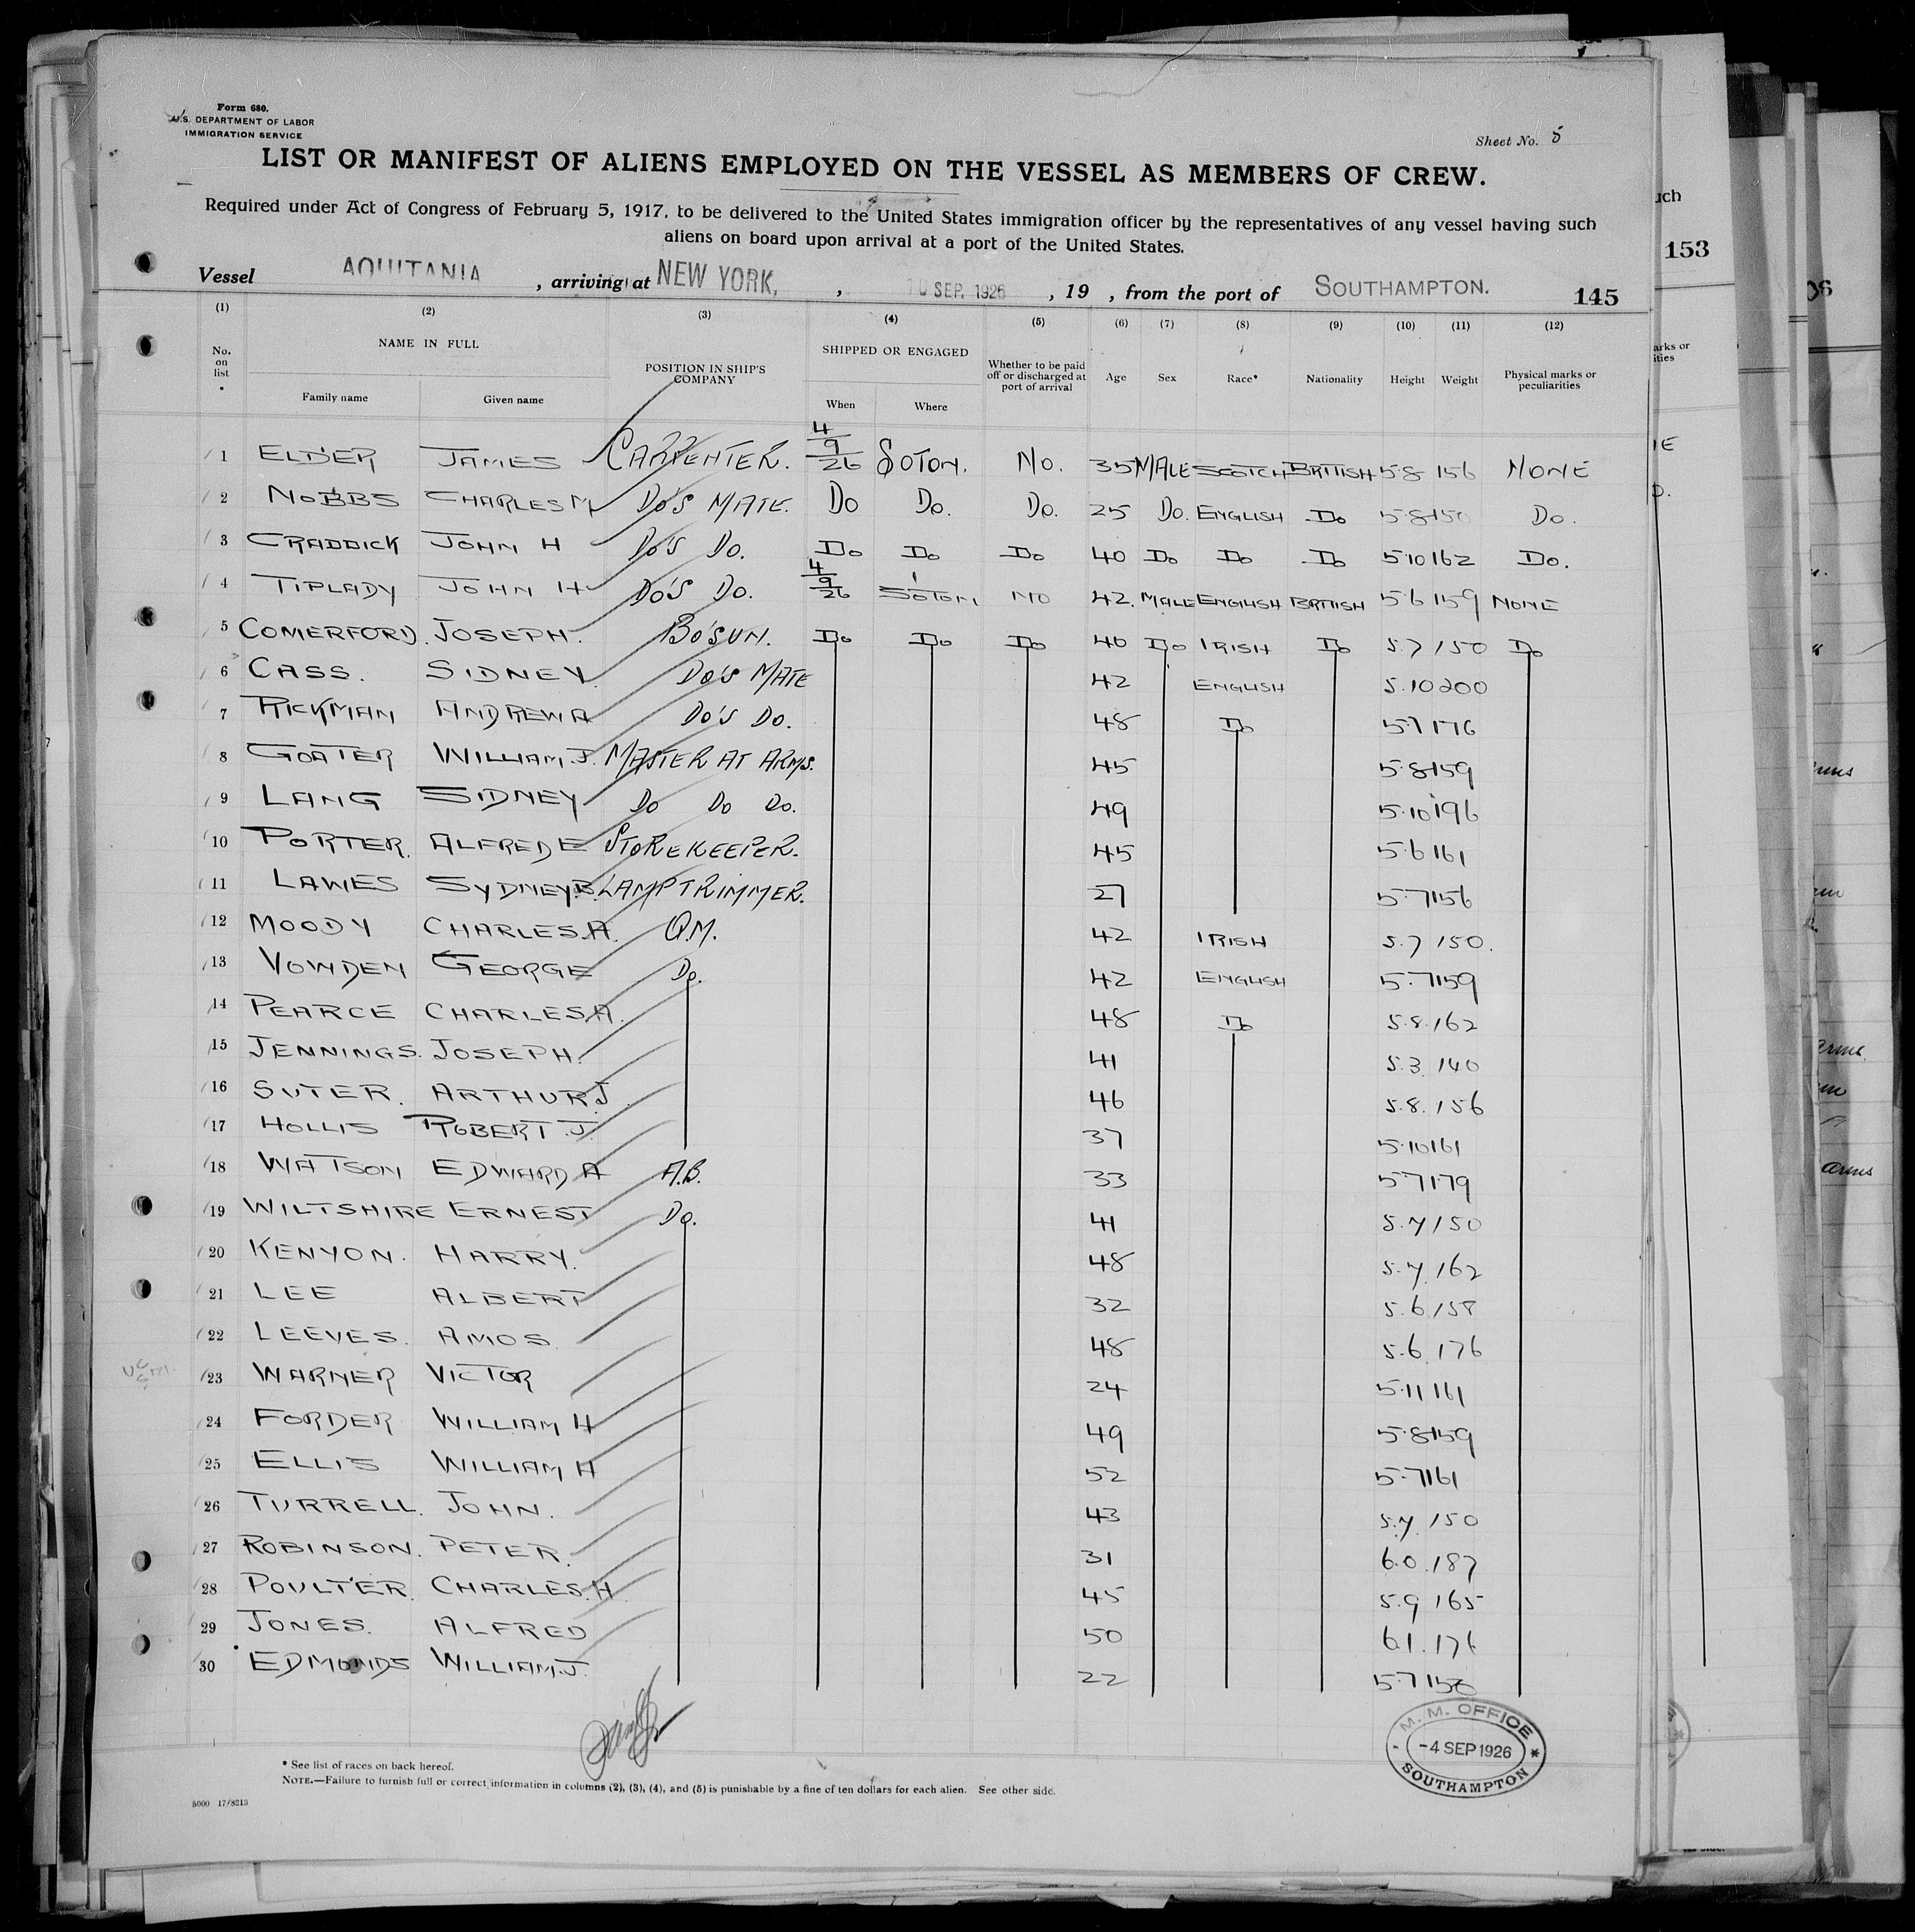 Form 680.
U.S. DEPARTMENT OF LABOR
IMMIGRATION SERVICE
Sheet No. 5
LIST OR MANIFEST OF ALIENS EMPLOYED ON THE VESSEL AS MEMBERS OF CREW.
Required under Act of Congress of February 5, 1917, to be delivered to the United States immigration officer by the representatives of any vessel having such
aliens on board upon arrival at a port of the United States.
Vessel AQUITANIA , arriving at NEW YORK, , 10 SEP. 1926 , 19 , from the port of SOUTHAMPTON. 145
(1) (2) (3) (4) (5) (6) (7) (8) (9) (10) (11) (12)
No. on list NAME IN FULL Family name Given name POSITION IN SHIP'S COMPANY SHIPPED OR ENGAGED When Where Whether to be paid off or discharged at port of arrival Age Sex Race* Nationality Height Weight Physical marks or peculiarities
1 ELDER JAMES CARPENTER. 4/9/26 SOTON. NO. 35 MALE SCOTCH BRITISH 5.8 156 NONE
2 NOBBS CHARLES M DO'S MATE. DO DO. DO. 25 DO. ENGLISH DO 5.8 150 DO.
3 CRADDICK JOHN H DO'S DO. DO DO DO 40 DO DO DO 5.10 162 DO.
4 TIPLADY JOHN H DO'S DO. 4/9/26 SOTON NO 42. MALE ENGLISH BRITISH 5.6 159 NONE
5 COMERFORD. JOSEPH. BO'SUN. DO DO DO 40 DO IRISH DO 5.7 150 DO
6 CASS. SIDNEY. DO'S MATE 42 ENGLISH 5.10 200
7 RICKMAN ANDREW A DO'S DO. 48 DO 5.7 176
8 GOATER WILLIAM.J. MASTER AT ARMS. 45 5.8 159
9 LANG SIDNEY DO DO DO. 49 5.10 196
10 PORTER. ALFRED E STOREKEEPER. 45 5.6 161
11 LAWES SYDNEY.B. LAMPTRIMMER. 27 5.7 156
12 MOODY CHARLES.A. Q.M. 42 IRISH 5.7 150.
13 VOWDEN GEORGE DO. 42 ENGLISH 5.7 159
14 PEARCE CHARLES A. 48 DO 5.8. 162
15 JENNINGS. JOSEPH. 41 5.3. 140
16 SUTER. ARTHUR J. 46 5.8. 156
17 HOLLIS ROBERT.J. 37 5.10 161
18 WATSON EDWARD A A.B. 33 5.7 179
19 WILTSHIRE ERNEST DO. 41 5.7 150
20 KENYON. HARRY. 48 5.7. 162
21 LEE ALBERT 32 5.6. 158
22 LEEVES. AMOS. 48 5.6. 176
23 WARNER VICTOR 24 5.11 161
24 FORDER WILLIAM H 49 5.8 159
25 ELLIS WILLIAM H 52 5.7 161
26 TURRELL. JOHN. 43 5.7. 150
27 ROBINSON. PETER. 31 6.0. 187
28 POULTER. CHARLES.H. 45 5.9 165
29 JONES. ALFRED 50 6.1. 176
30 EDMONDS WILLIAM.J. 22 5.7
M. M. OFFICE
-4 SEP 1926 *
SOUTHAMPTON
* See list of races on back hereof.
NOTE.—Failure to furnish full or correct information in columns (2), (3), (4), and (5) is punishable by a fine of ten dollars for each alien. See other side.
5000 17/8213
153